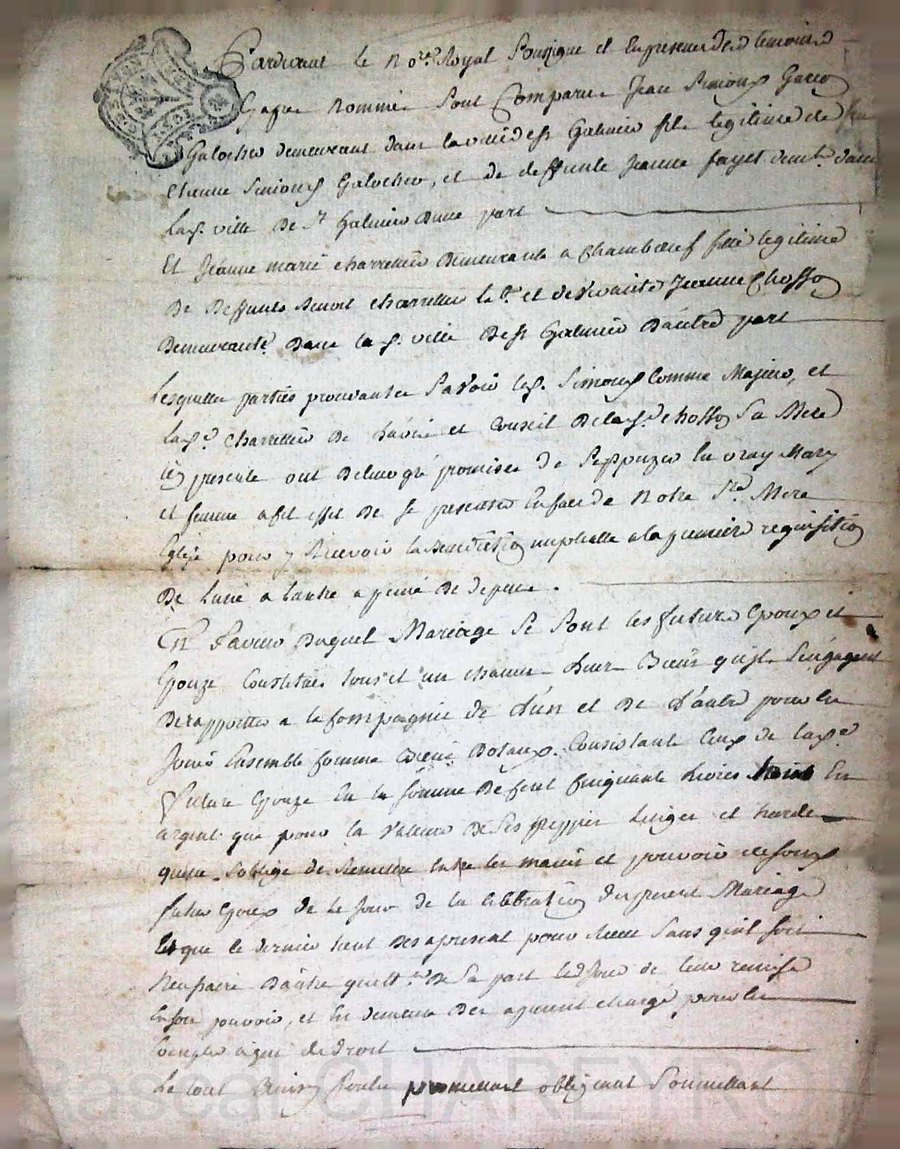 Pardevant le No.re Royal Soussigné et En presence des temoins
Nommés Sont Comparus Jean Simond Garçon
Galocher demeurant dans la ville de St Galmier fils legitime de feu
Etienne Simond Galocher, et de deffunte Jeanne fayet demt. dans
lad. ville de St Galmier Dune part
Et Jeanne marie charretier Demeurante a Chambœuf fille legitime
De Deffunt Benoit charretier lab.r et de vivante Jeanne Chosson
Demeurante Dans lad. ville De St Galmier Dautre part
Lesquelles parties procedantes Savoir led. Simond Comme Majeur, et
lad.e charretier De Lavis et Conseil De lad.e chosson Sa Mere
icy presente ont De leur gré promises de Sepouzer En vray Mary
et femme a cet effet De Se presenter En face de Notre S.te Mere
Eglise pour y Recevoir la Benediction nuptialle a la premiere requisition
De lune a lautre a peine De depens.
En Faveur Duquel Mariage Se Sont les futurs Epoux et
Epouze Constitués tous et un chacun Leurs Biens quils Sengagent
De rapporter a la Compagnie de Lun et De Lautre pour en
Jouir Ensemble Comme Biens Dotaux Consistant Ceux de lad.e
Future Epouze En la Somme De Cent Cinquante Livres En
argent que pour la valeur De Ses linges et hardes
quelle Soblige de Remettre Entre les mains et pouvoir de Son
futur Epoux de le Jour de la Celebration du present Mariage
Et que le dernier tient Des apresent pour Receu Sans quil Soit
Necessaire Dautre quitt.ce De Sa part le Jour de leur remise
En Son pouvoir, et En demeure Des apresent chargé pour les
Rendre a qui de droit
Le tout Ainsy Voulu promettant obligeant Soumettant
Pascal CHAREYRON